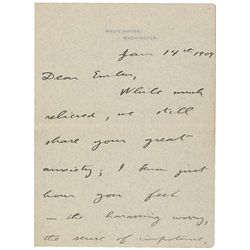 WHITE HOUSE,
WASHINGTON.
Jan 14th 1909
Dear Emlen,
While much
relieved, we still
share your great
anxiety; I know just
how you feel
— the harassing worry,
the sense of impotence,